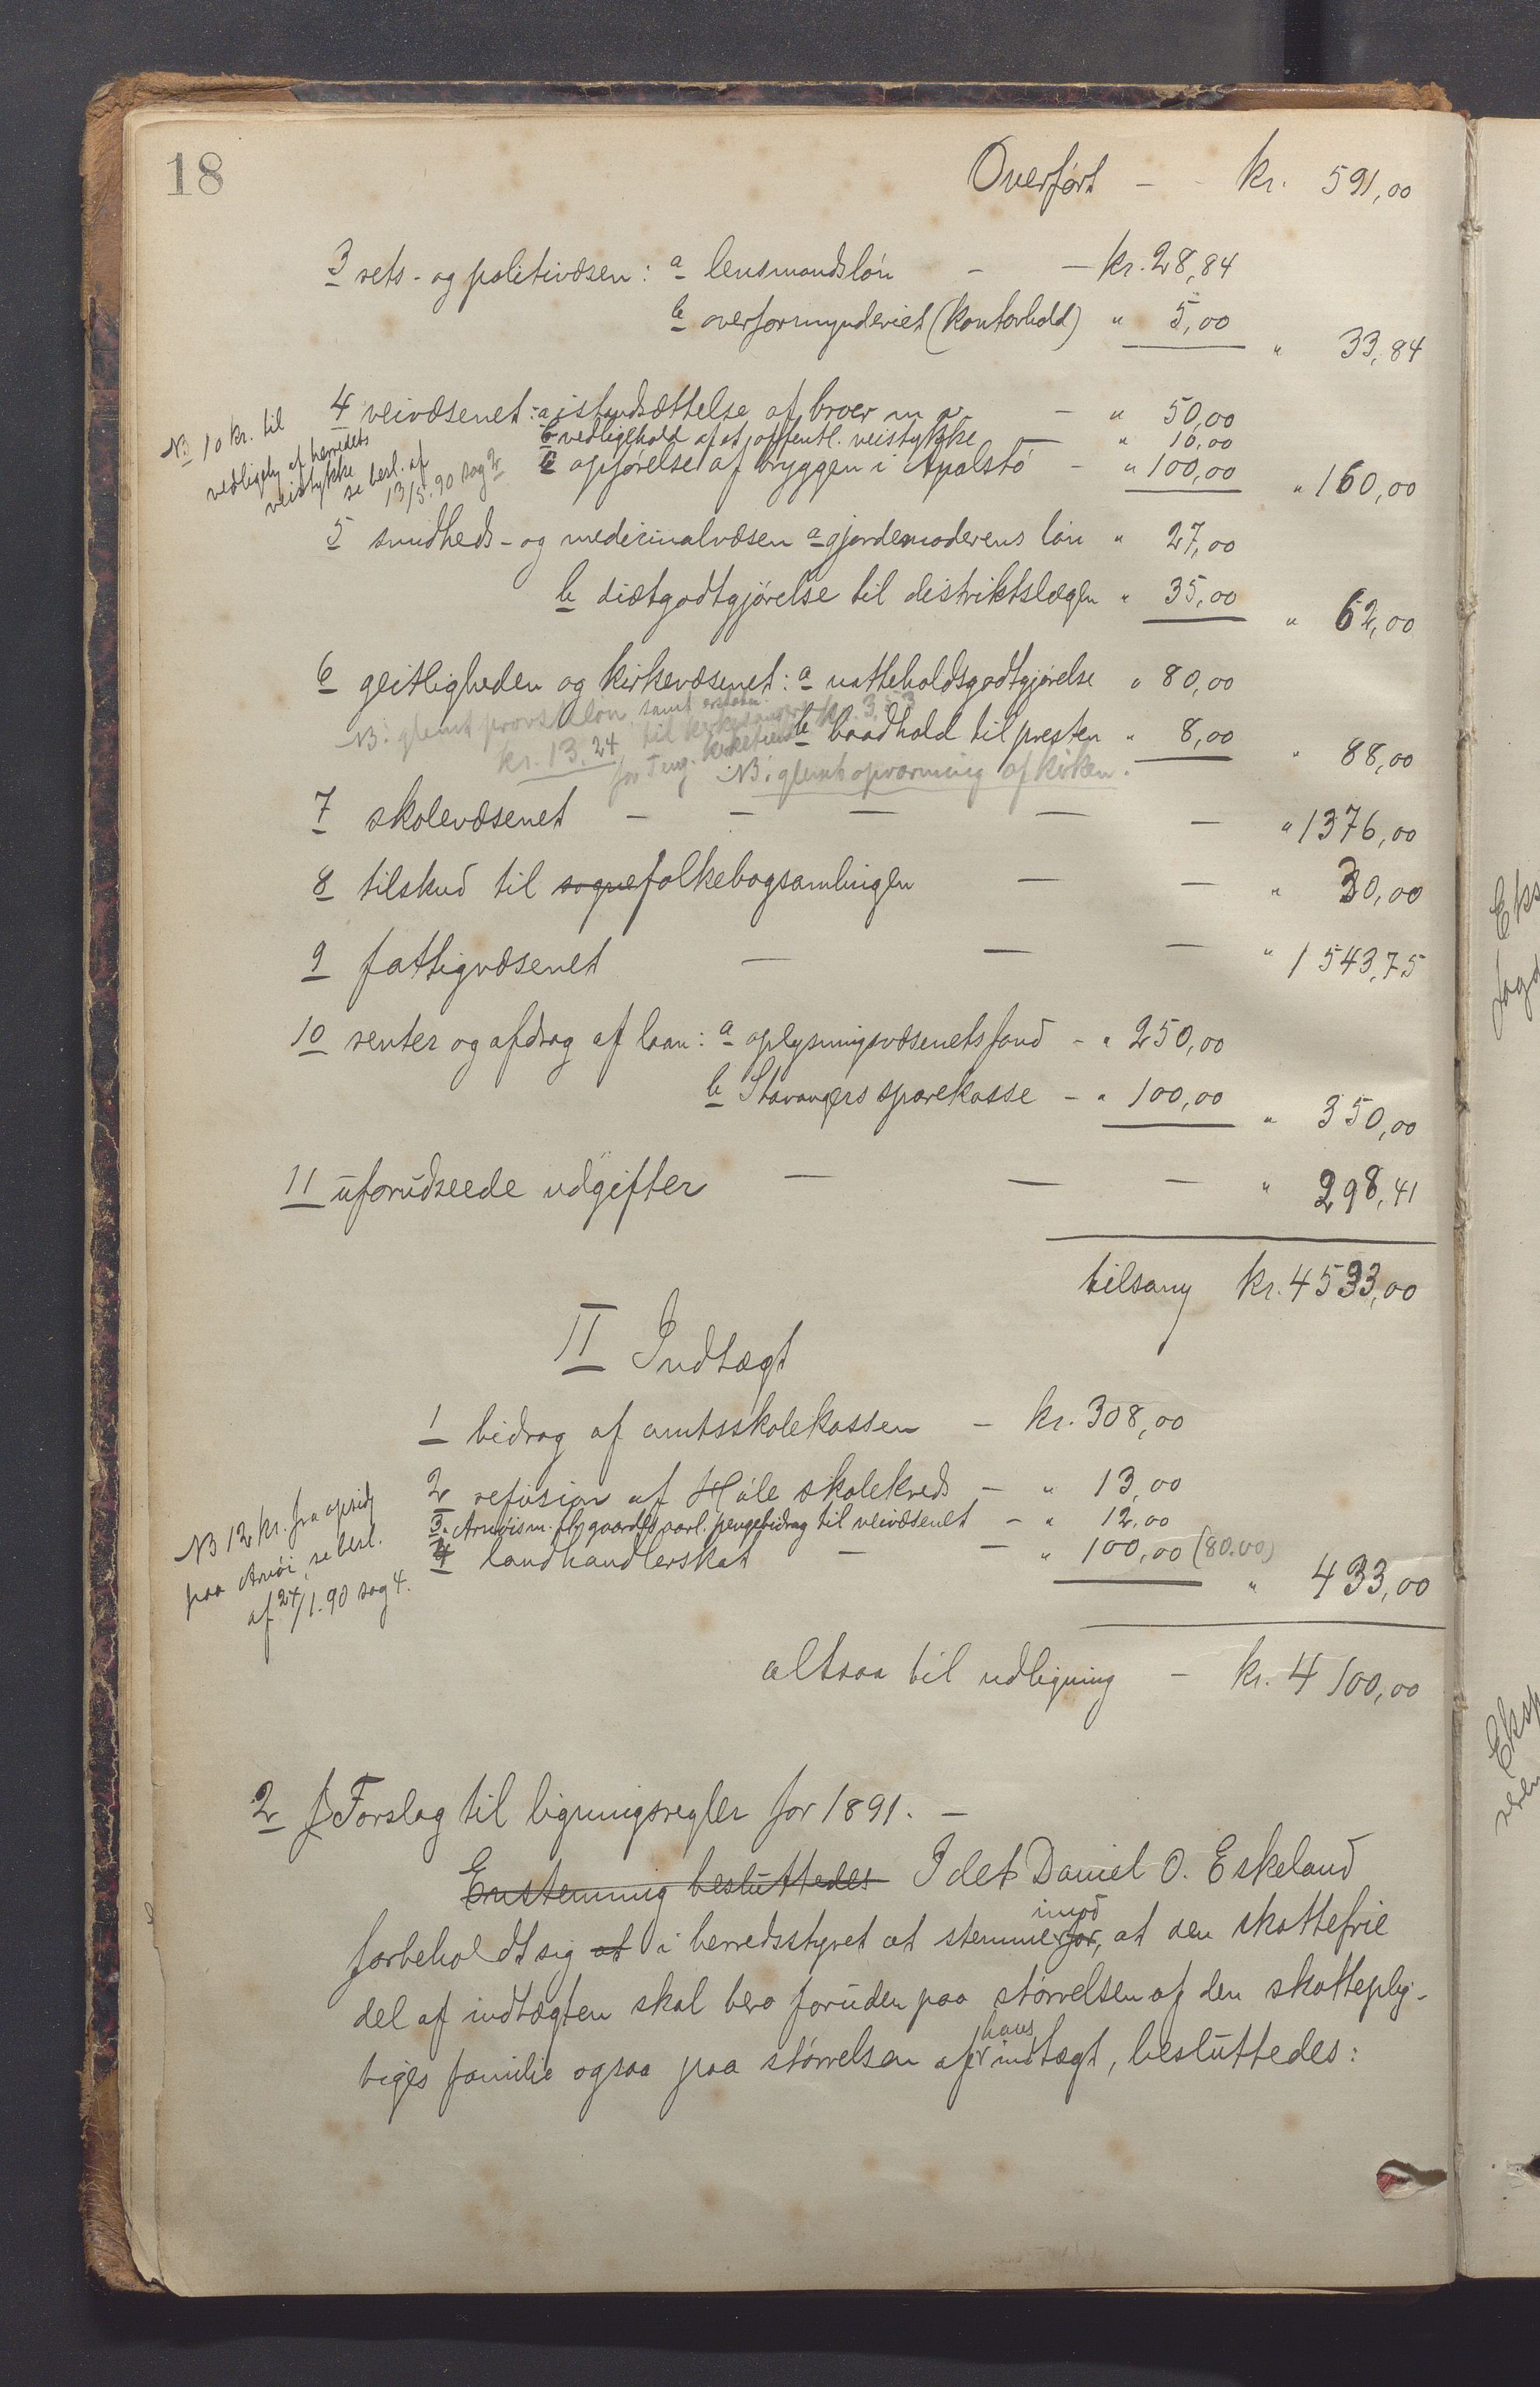 18
Overført - - kr. 591,00
3 rets- og politivæsen: a lensmandsløn - - kr. 28,84
b overformynderiet (kontorhold) " 5,00
" 33,84
4 veivæsenet: a istandsættelse af broer m. v. - " 50,00
b vedligehold af et offentl. veistykke - " 10,00
c opførelse af bryggen i Apalstø - " 100,00
" 160,00
NB 10 kr. til
vedligeh. af herredets
veistykke
se besl. af
13/5. 90 sag 2
5 sundheds- og medicinalvæsen a gjordemoderens løn " 27,00
b diætgodtgjørelse til distriktslægen " 35,00
" 62,00
6 geistligheden og kirkevæsenet: a natteholdsgodtgjørelse " 80,00
NB. glemt provsteløn, samt
kr. 13.24 til kirkesanger kr. 3,53
b baadhold til presten " 8,00
" 88,00
NB. glemt opvarming af kirken.
7 skolevæsenet - - - - - " 1376,00
8 tilskud til sogne folkebogsamlingen - - " 30,00
9 fattigvæsenet - - - " 1543,75
10 renter og afdrag af laan: a oplysningsvæsenets fond - " 250,00
b Stavangers sparekasse - " 100,00
" 350,00
11 uforudseede udgifter - - - " 298,41
tilsamm kr. 4533,00
II Indtægt
1 bidrag af amtsskolekassen - kr. 308,00
2 refusion af Håle skolekreds - " 13,00
3. Arnøis m. fl. gaardes aarl. pengebidrag til veivæsenet - " 12,00
4 landhandlerskat - - " 100,00 (80.00)
" 433,00
NB 12 kr. fra opsid.
paa Arnøi, se besl.
af 24/1. 90 sag 4.
altsaa til udligning - kr. 4100,00
2 Forslag til ligningsregler for 1891. -
Enstemmig besluttedes Idet Daniel O. Eskeland
forbeholdt sig at i herredsstyret at stemme for imod, at den skattefrie
del af indtægten skal bero foruden paa størrelsen af den skatteplig-
tiges familie ogsaa paa størrelsen af hans indtægt, besluttedes: